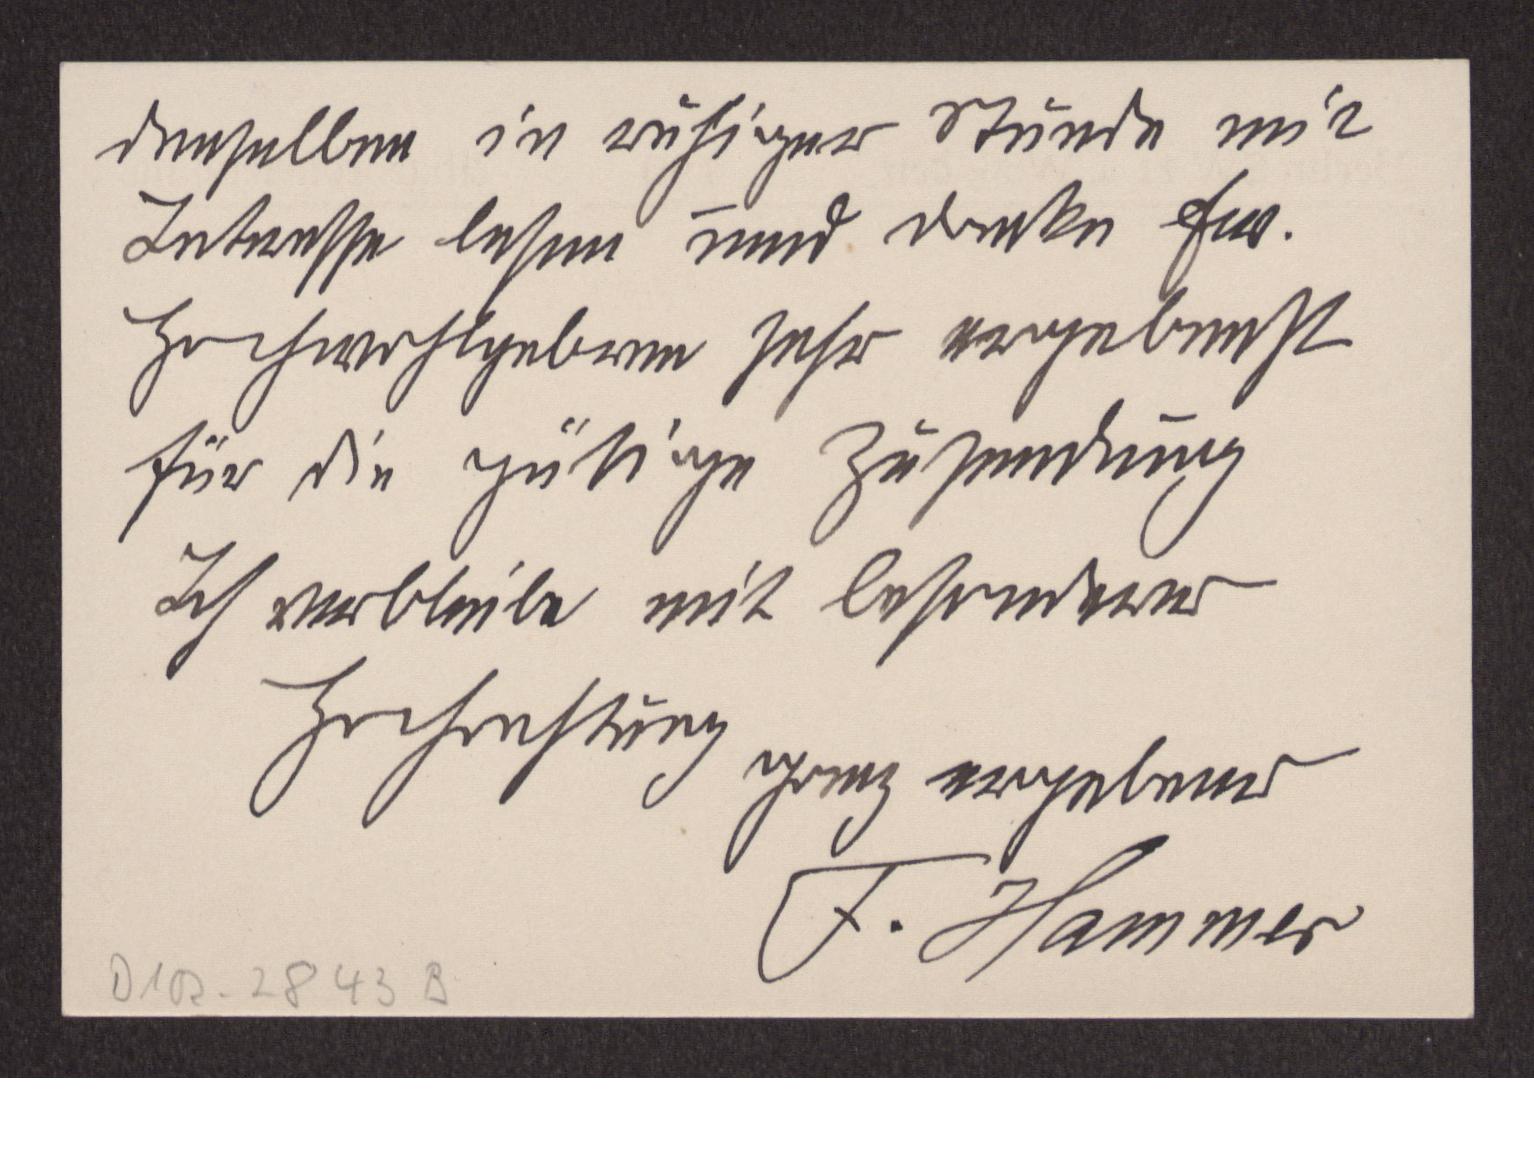 denselben in ruhiger Stunde mit
Interesse lesen und danke Ew.
Hochwohlgeboren sehr ergebenst
für die gütige Zusendung
Ich verbleibe mit besonderer
Hochachtung
ganz ergebener
F. Hammer
D102-2843 B